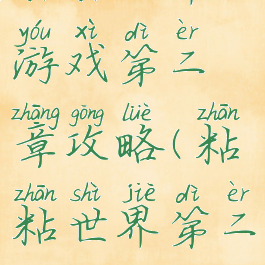 yóu xì dì èr
游戏第二
zhāng gōng lüè zhān
章攻略(粘
zhān shì jiè dì èr
粘世界第二